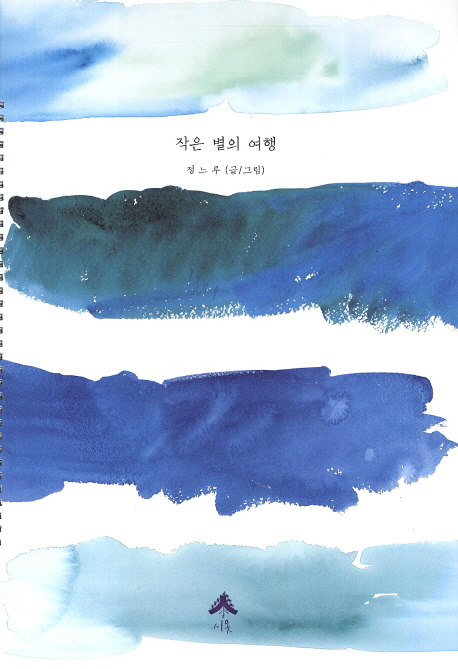 작은 별의 여행
정느루 (글/그림)
시옷